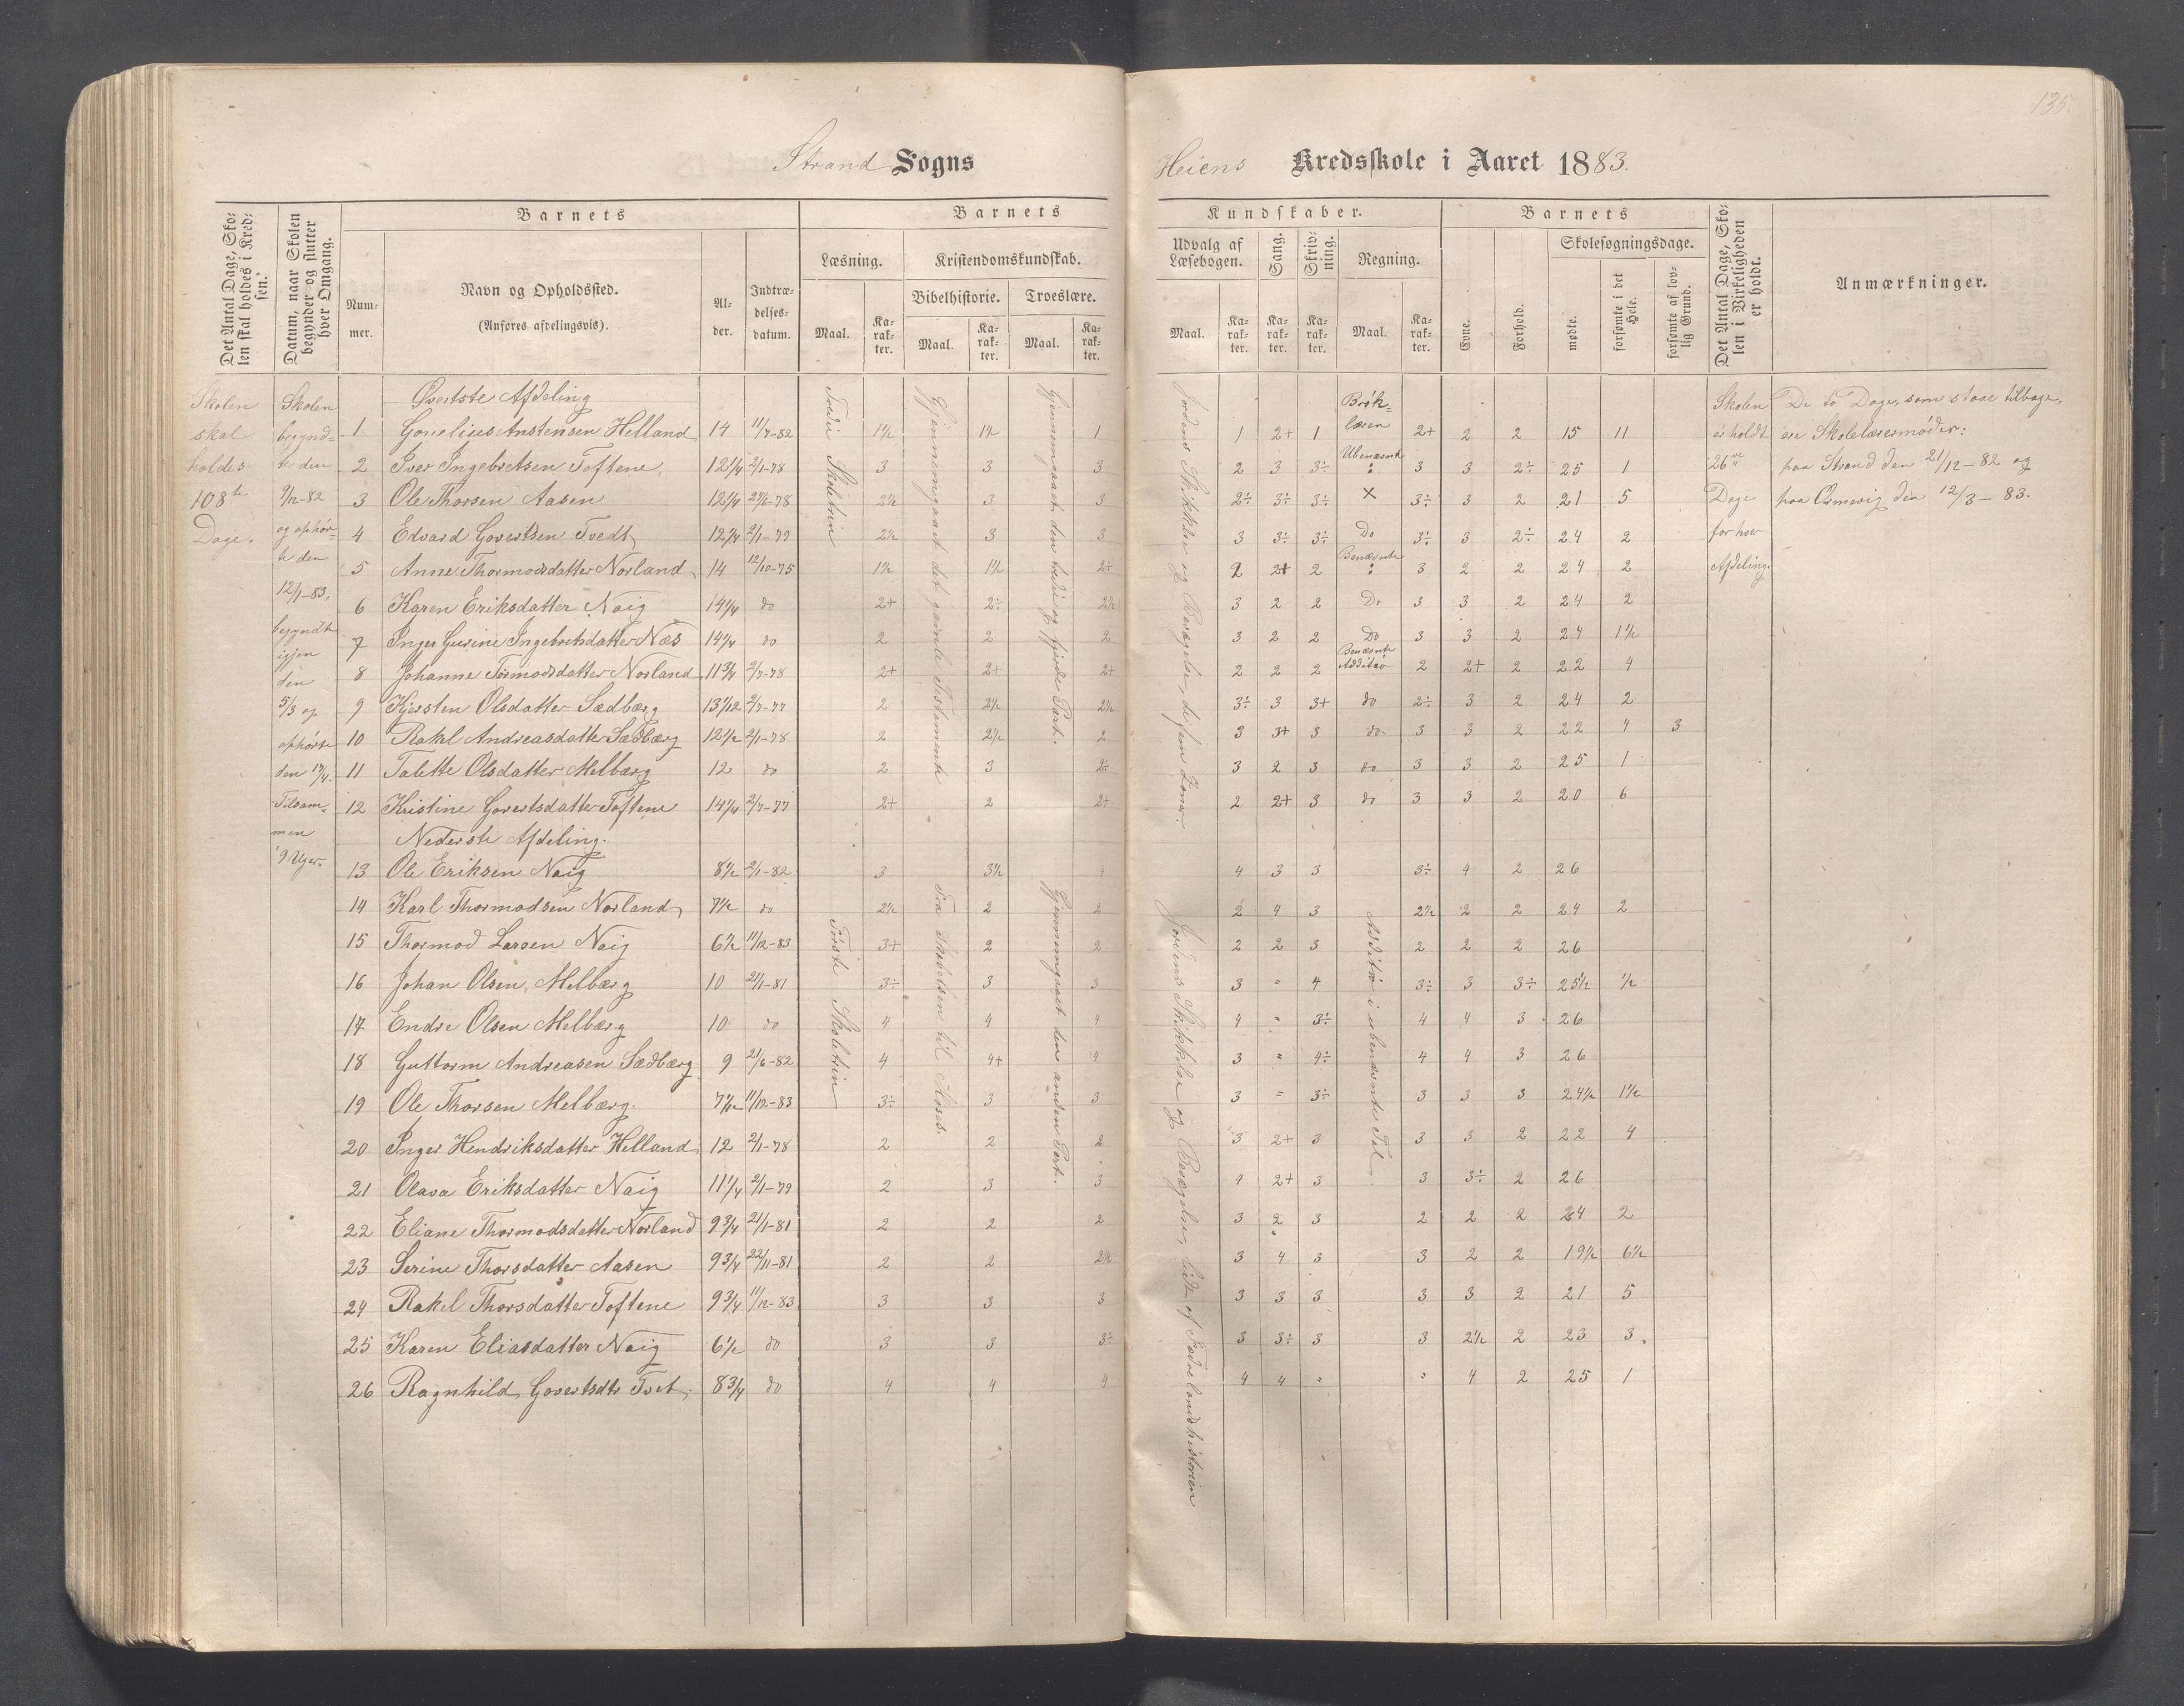 135.
Strand Sogns
Heiens Kredsskole i Aaret 1883.
Det Antal Dage, Skolen skal holdes i Kredsen.
Datum, naar Skolen begynder og slutter hver Omgang.
Barnets
Nummer.
Navn og Opholdssted.
(Anføres afdelingsvis).
Alder.
Indtrædelsesdatum.
Barnets
Læsning.
Kristendomskundskab.
Bibelhistorie.
Troeslære.
Maal.
Karakter.
Maal.
Karakter.
Maal.
Karakter.
Kundskaber.
Udvalg af Læsebogen.
Sang.
Skrivning.
Regning.
Maal.
Karakter.
Karakter.
Karakter.
Maal.
Karakter.
Barnets
Evne.
Forhold.
Skolesøgningsdage.
mødte.
forsømte i det Hele.
forsømte af lovlig Grund.
Det Antal Dage, Skolen i Virkeligheden er holdt.
Anmærkninger.
Skolen
skal
holdes
108te
Dage.
Skolen
begynd-
te den
9/12-82
og ophør-
te den
12/1-83,
begyndte
igjen
den
5/3 og
ophørte
den 14/4.
Tilsam-
men
9 Uger.
Øverste Afdeling
1 Gonelius Anstensen Helland 14 11/7-82 1½ 1½ 1 1 2+ 1 Brøk-læren 2+ 2 2 15 11
2 Iver Ingebretsen Toftene 12¼ 2/1-78 3 3 3 2 3 3÷ Ubenævnte : 3 3 2÷ 25 1
3 Ole Thorsen Aasen 12¼ 24/6-78 2½ 3 3 2÷ 3÷ 3÷ × 3÷ 3 2 21 5
4 Edvard Govertsen Tvedt 12¼ 2/1-79 2½ 3 3 3 3÷ 3÷ Do 3÷ 3 2÷ 24 2
5 Anne Thormodsdatter Norland 14 12/10-75 1½ 1½ 2+ 2 2+ 2 Benævnte : 3 2 2 24 2
6 Karen Eriksdatter Naig 14¼ do 2+ 2÷ 2½ 3 2 2 Do 3 3 2 24 2
7 Inger Gurine Ingebretsdatter Næs 14¼ do 2 2 2 3 2 2 Do 3 3 2 24 1½
8 Johanne Tormodsdatter Norland 11¾ 2/7-78 2+ 2+ 2+ 2 2 2 Benævnte Additio 2 2+ 2 22 4
9 Kjersten Olsdatter Sædbærg 13 1/12 2/7-77 2 2½ 2½ 3÷ 3 3+ do 2÷ 3 2 24 2
10 Rakel Andreasdatter Sædbærg 12½ 2/1-78 2 2½ 2 3 3+ 3 do 3 3 2 22 4 3
11 Talette Olsdatter Melbærg 12 do 2 3 2÷ 3 2 3 do 3 3 2 25 1
12 Kristine Govertsdatter Toftene 14¼ 2/7-77 2+ 2 2+ 2 2+ 3 do 3 3 2 20 6
Nederste Afdeling.
13 Ole Eriksen Naig 8½ 2/1-82 3 3½ 4 4 3 3 3÷ 4 2 26
14 Karl Thormodsen Norland 7½ do 2½ 2 2 2 4 3 2½ 2 2 24 2
15 Thormod Larsen Naig 6½ 11/12-83 3+ 2 2 2 2 3 2 2 2 26
16 Johan Olsen Melbærg 10 21/1-81 3÷ 3 3 3 " 4 3÷ 3 3÷ 25½ ½
17 Endre Olsen Melbærg 10 do 4 4 4 4 " 3÷ 4 4 3 26
18 Guttorm Andreasen Sædbærg 9 21/6-82 4 4+ 4 3 " 4÷ 4 4 3 26
19 Ole Thorsen Melbærg 7½ 11/12-83 3÷ 3 3 3 " 3÷ 3 3 3 24½ 1½
20 Inger Hendriksdatter Helland 12 2/1-78 2 2 2 3 2+ 3 3 3 2 22 4
21 Olava Eriksdatter Naig 11¼ 2/1-79 2 3 3 4 2+ 3 3 3÷ 2 26
22 Eliane Thormodsdatter Norland 9¾ 21/1-81 2 2 2 3 2 3 2 2 2 24 2
23 Serine Thorsdatter Aasen 9¾ 22/11-81 2 2 2½ 3 4 3 3 2 2 19½ 6½
24 Rakel Thorsdatter Toftene 9¾ 11/12-83 3 3 3 3 3 3 3 3 2 21 5
25 Karen Eliasdatter Naig 6½ do 3 3 3÷ 3 3÷ 3 3 2½ 2 23 3
26 Ragnhild Govertsdtr Tvet 8¾ do 4 4 4 4 4 " " 4 2 25 1
Tredie Skoletrin
Gjennemgaaet det gamle Testamente
Gjennemgaaet den tredie og fjerde Part.
Jordens Skikkelse og Bevægelse, de fem Zoner.
Første Skoletrin
Fra Skabelsen til Moses.
Gjennemgaaet den anden Part.
Jordens Skikkelse og Bevægelse, lidt af Fædrelandshistorien
Additio i ubenævnte Tal.
Skolen
er holdt
26ve
Dage
for hver
Afdeling.
De to Dage, som staae tilbage,
ere Skolelærermøder:
paa Strand den 21/12-82 og
paa Osmevig den 12/3-83.